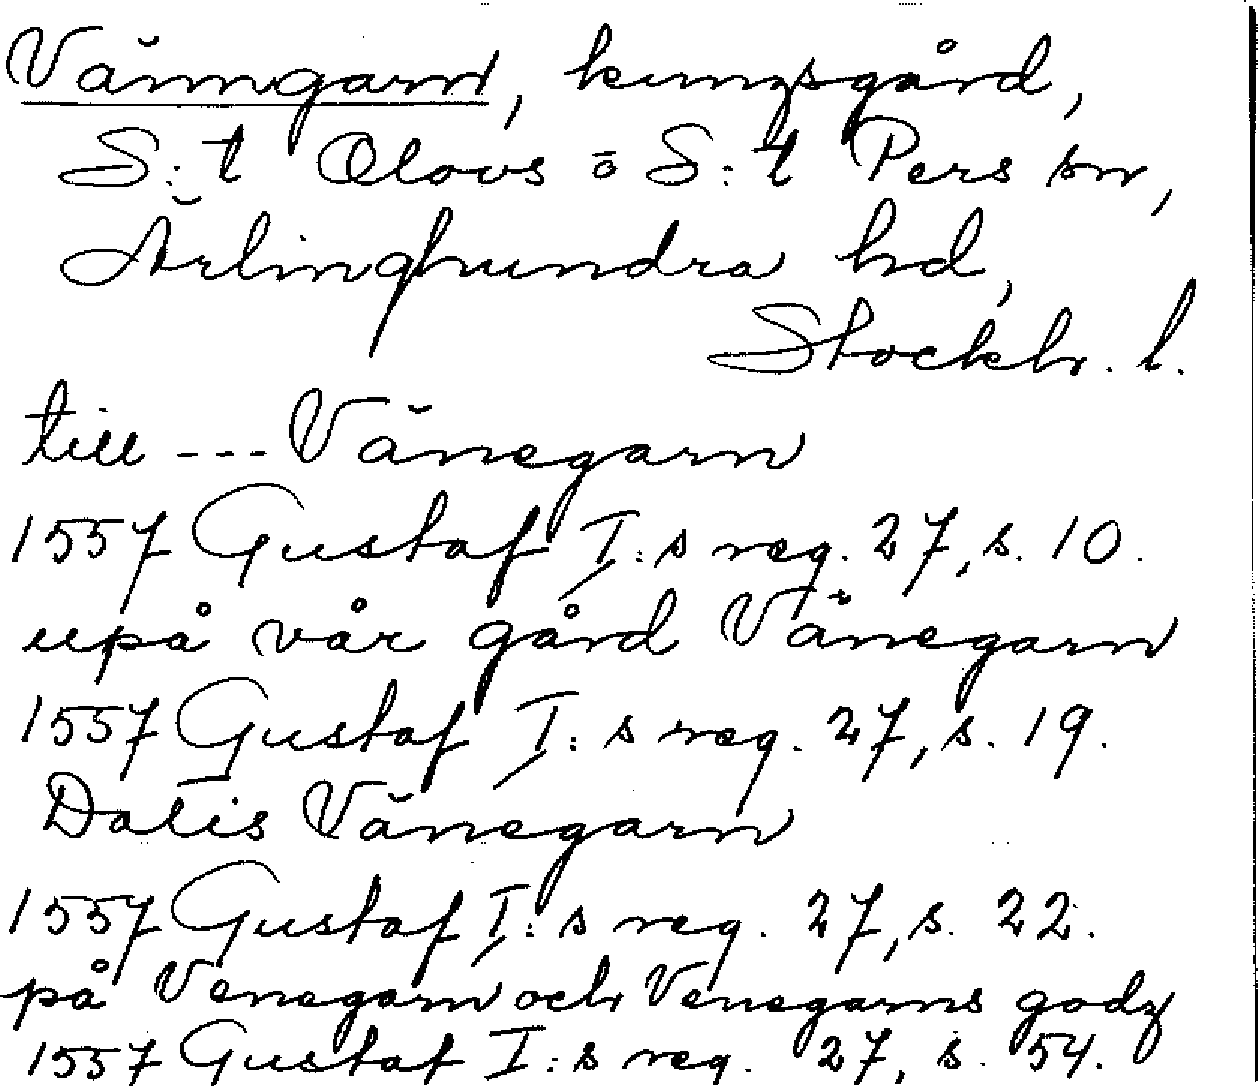 Vänngarn, kungsgård,
S:t Olovs o S:t Pers sn,
Ärlinghundra hd,
Stockh. l.
till --- Vänegarn
1557 Gustaf I:s reg. 27, s. 10.
upå vår gård Vänegarn
1557 Gustaf I:s reg. 27, s. 19.
Datis Vänegarn
1557 Gustaf I:s reg. 27, s. 22.
på Venegarn och Venegarns godz
1557 Gustaf I:s reg. 27, s. 54.